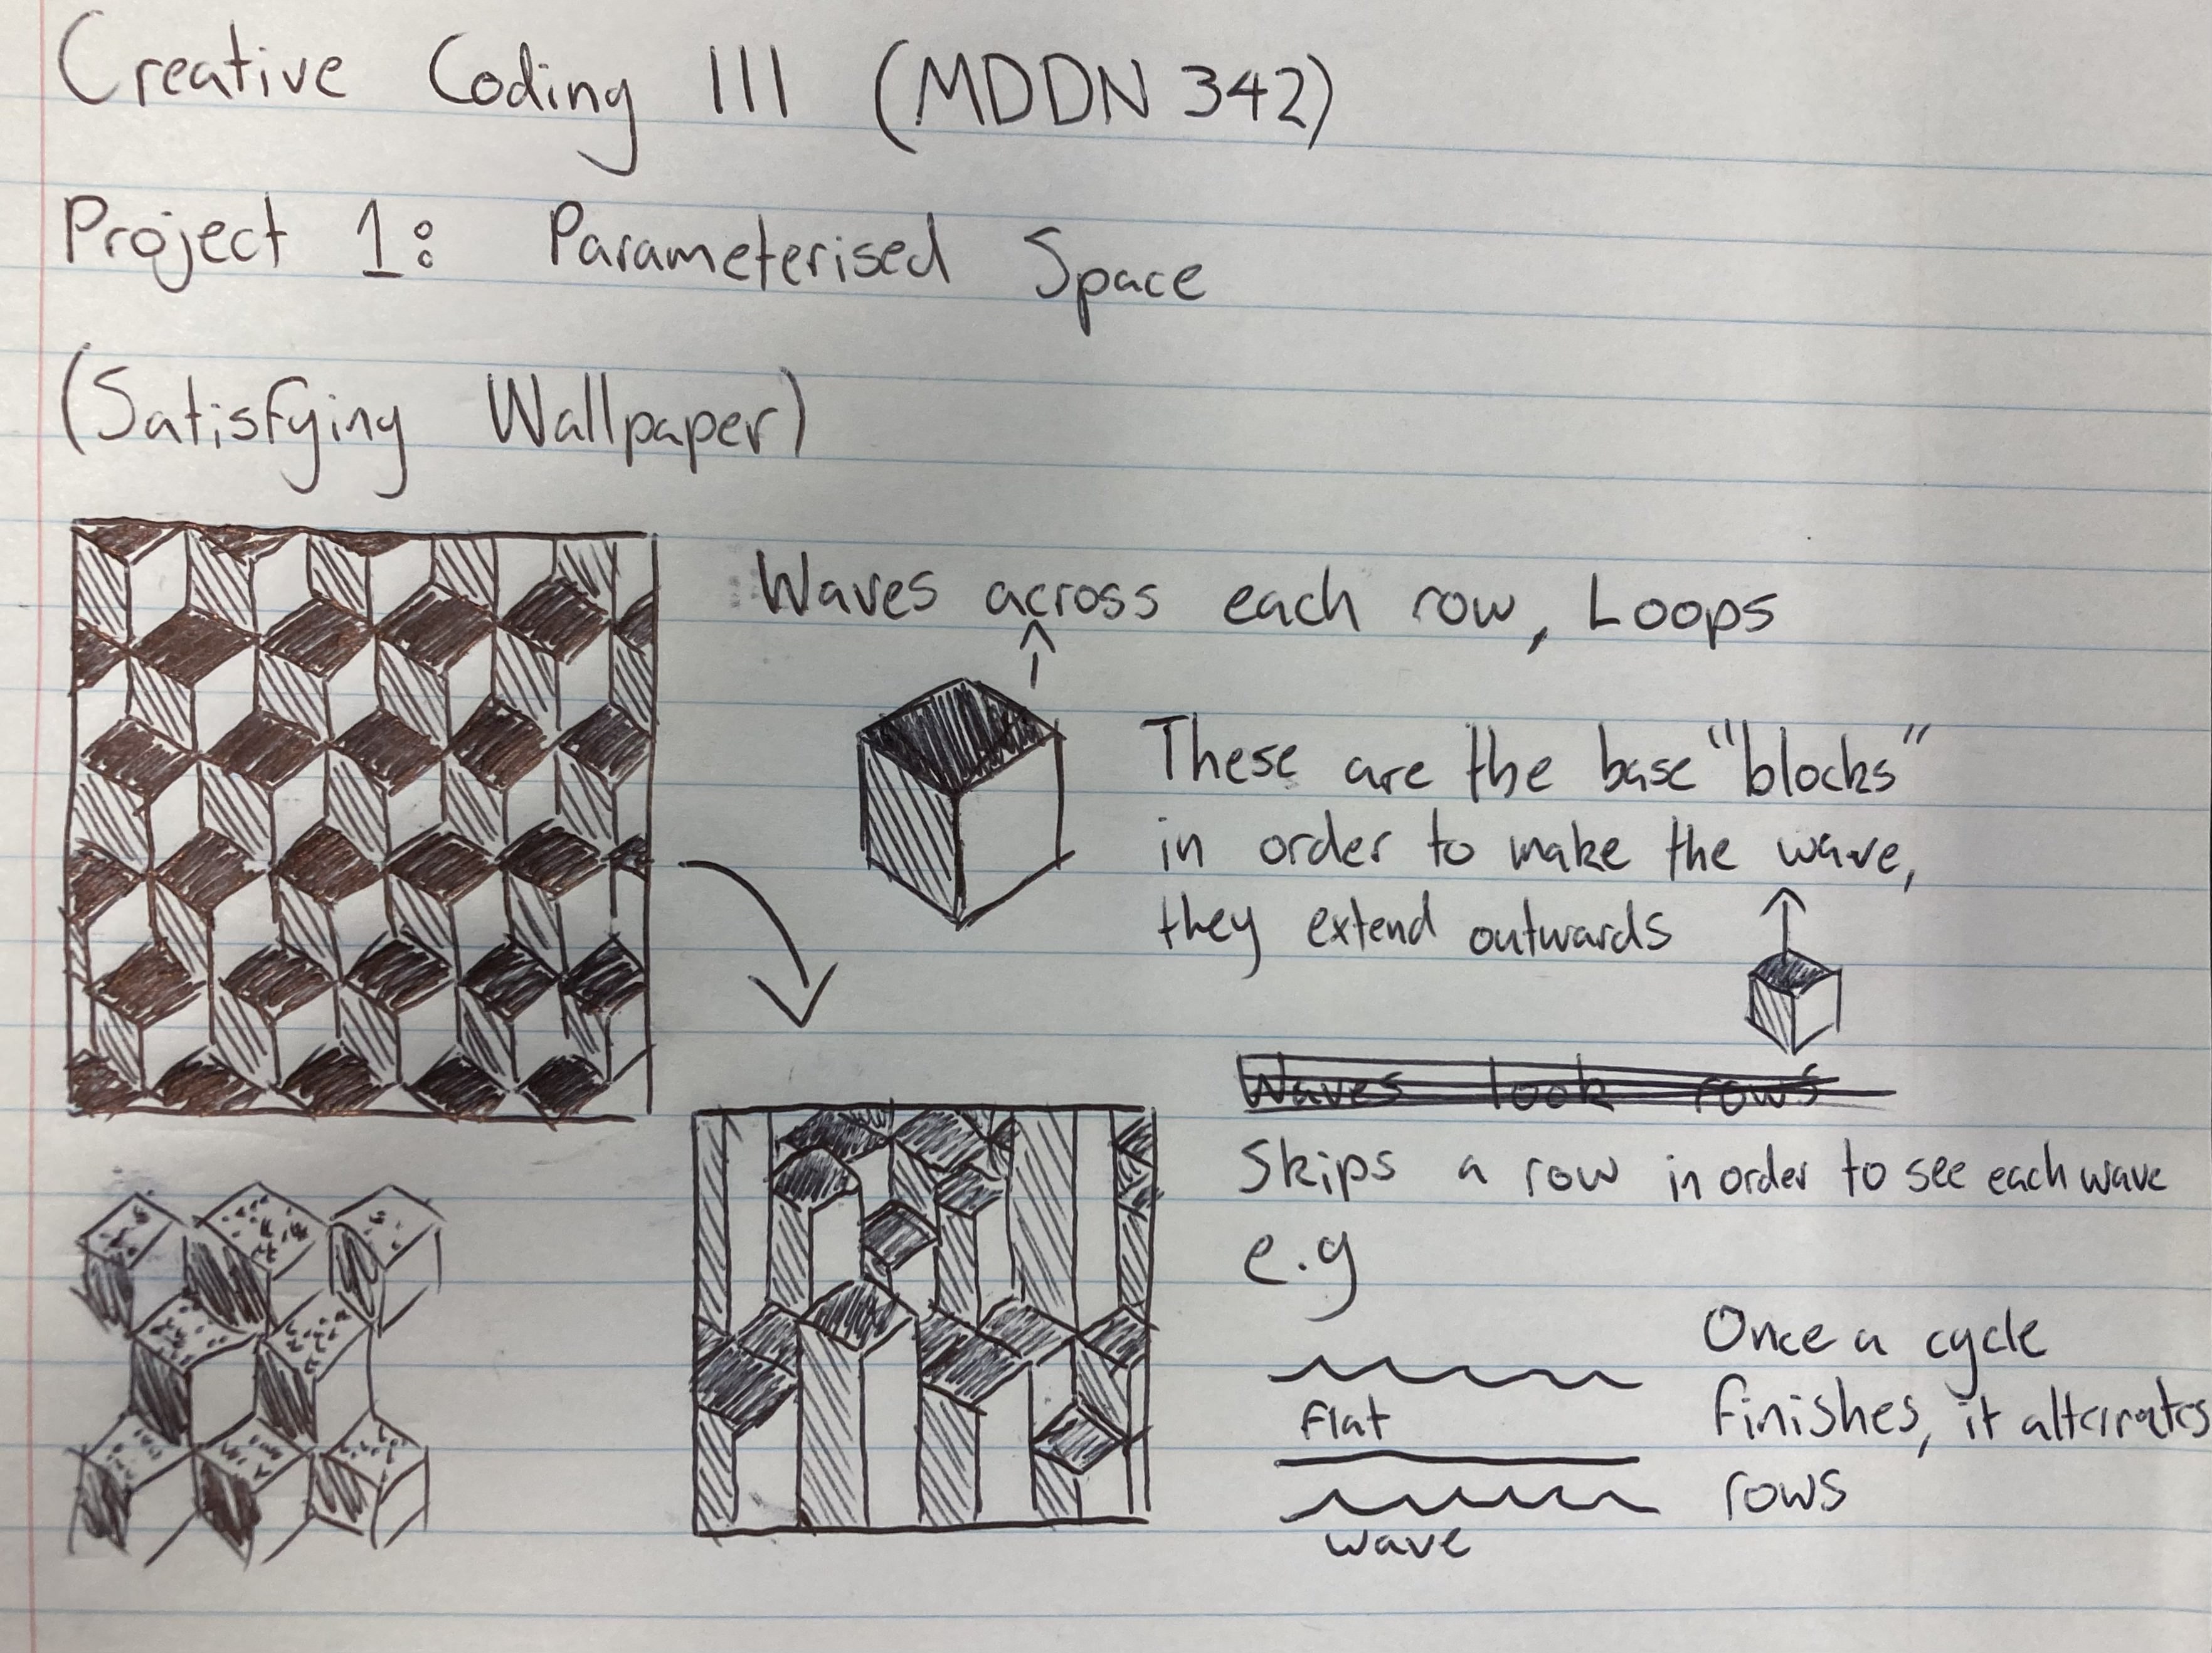 Creative Coding III (MDDN 342)
Project 1: Parameterised Space
(Satisfying Wallpaper)
Waves across each row, Loops
These are the base "blocks"
in order to make the wave,
they extend outwards
Waves look rows
Skips a row in order to see each wave
e.g
Flat
wave
Once a cycle
finishes, it alternates
rows